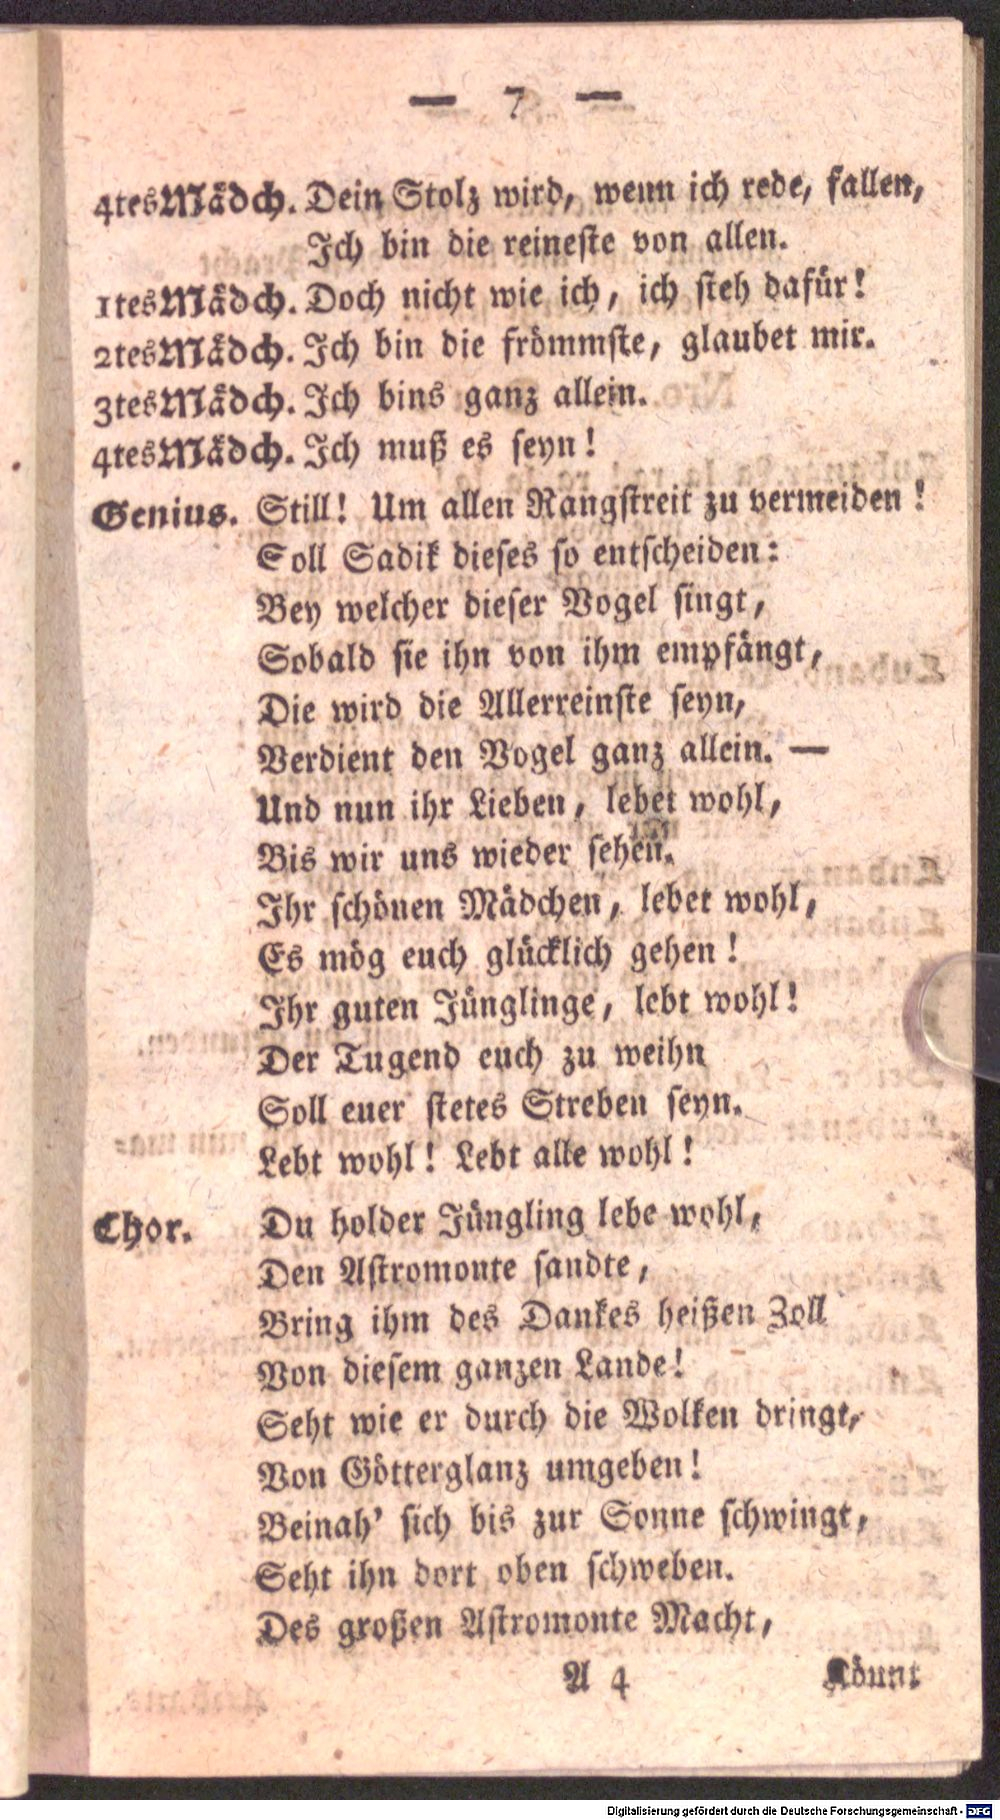 — 7 —
4tes Mädch. Dein Stolz wird, wenn ich rede, fallen,
Ich bin die reineste von allen.
1tes Mädch. Doch nicht wie ich, ich steh dafür!
2tes Mädch. Ich bin die frömmste, glaubet mir.
3tes Mädch. Ich bins ganz allein.
4tes Mädch. Ich muß es seyn!
Genius. Still! Um allen Rangstreit zu vermeiden!
Soll Sadik dieses so entscheiden:
Bey welcher dieser Vogel singt,
Sobald sie ihn von ihm empfängt,
Die wird die Allerreinste seyn,
Verdient den Vogel ganz allein. —
Und nun ihr Lieben, lebet wohl,
Bis wir uns wieder sehen.
Ihr schönen Mädchen, lebet wohl,
Es mög euch glücklich gehen!
Ihr guten Jünglinge, lebt wohl!
Der Tugend euch zu weihn
Soll euer stetes Streben seyn.
Lebt wohl! Lebt alle wohl!
Chor. Du holder Jüngling lebe wohl,
Den Astromonte sandte,
Bring ihm des Dankes heißen Zoll
Von diesem ganzen Lande!
Seht wie er durch die Wolken dringt,
Von Götterglanz umgeben!
Beinah' sich bis zur Sonne schwingt,
Seht ihn dort oben schweben.
Des großen Astromonte Macht,
A 4 Könnt
Digitalisierung gefördert durch die Deutsche Forschungsgemeinschaft - DFG